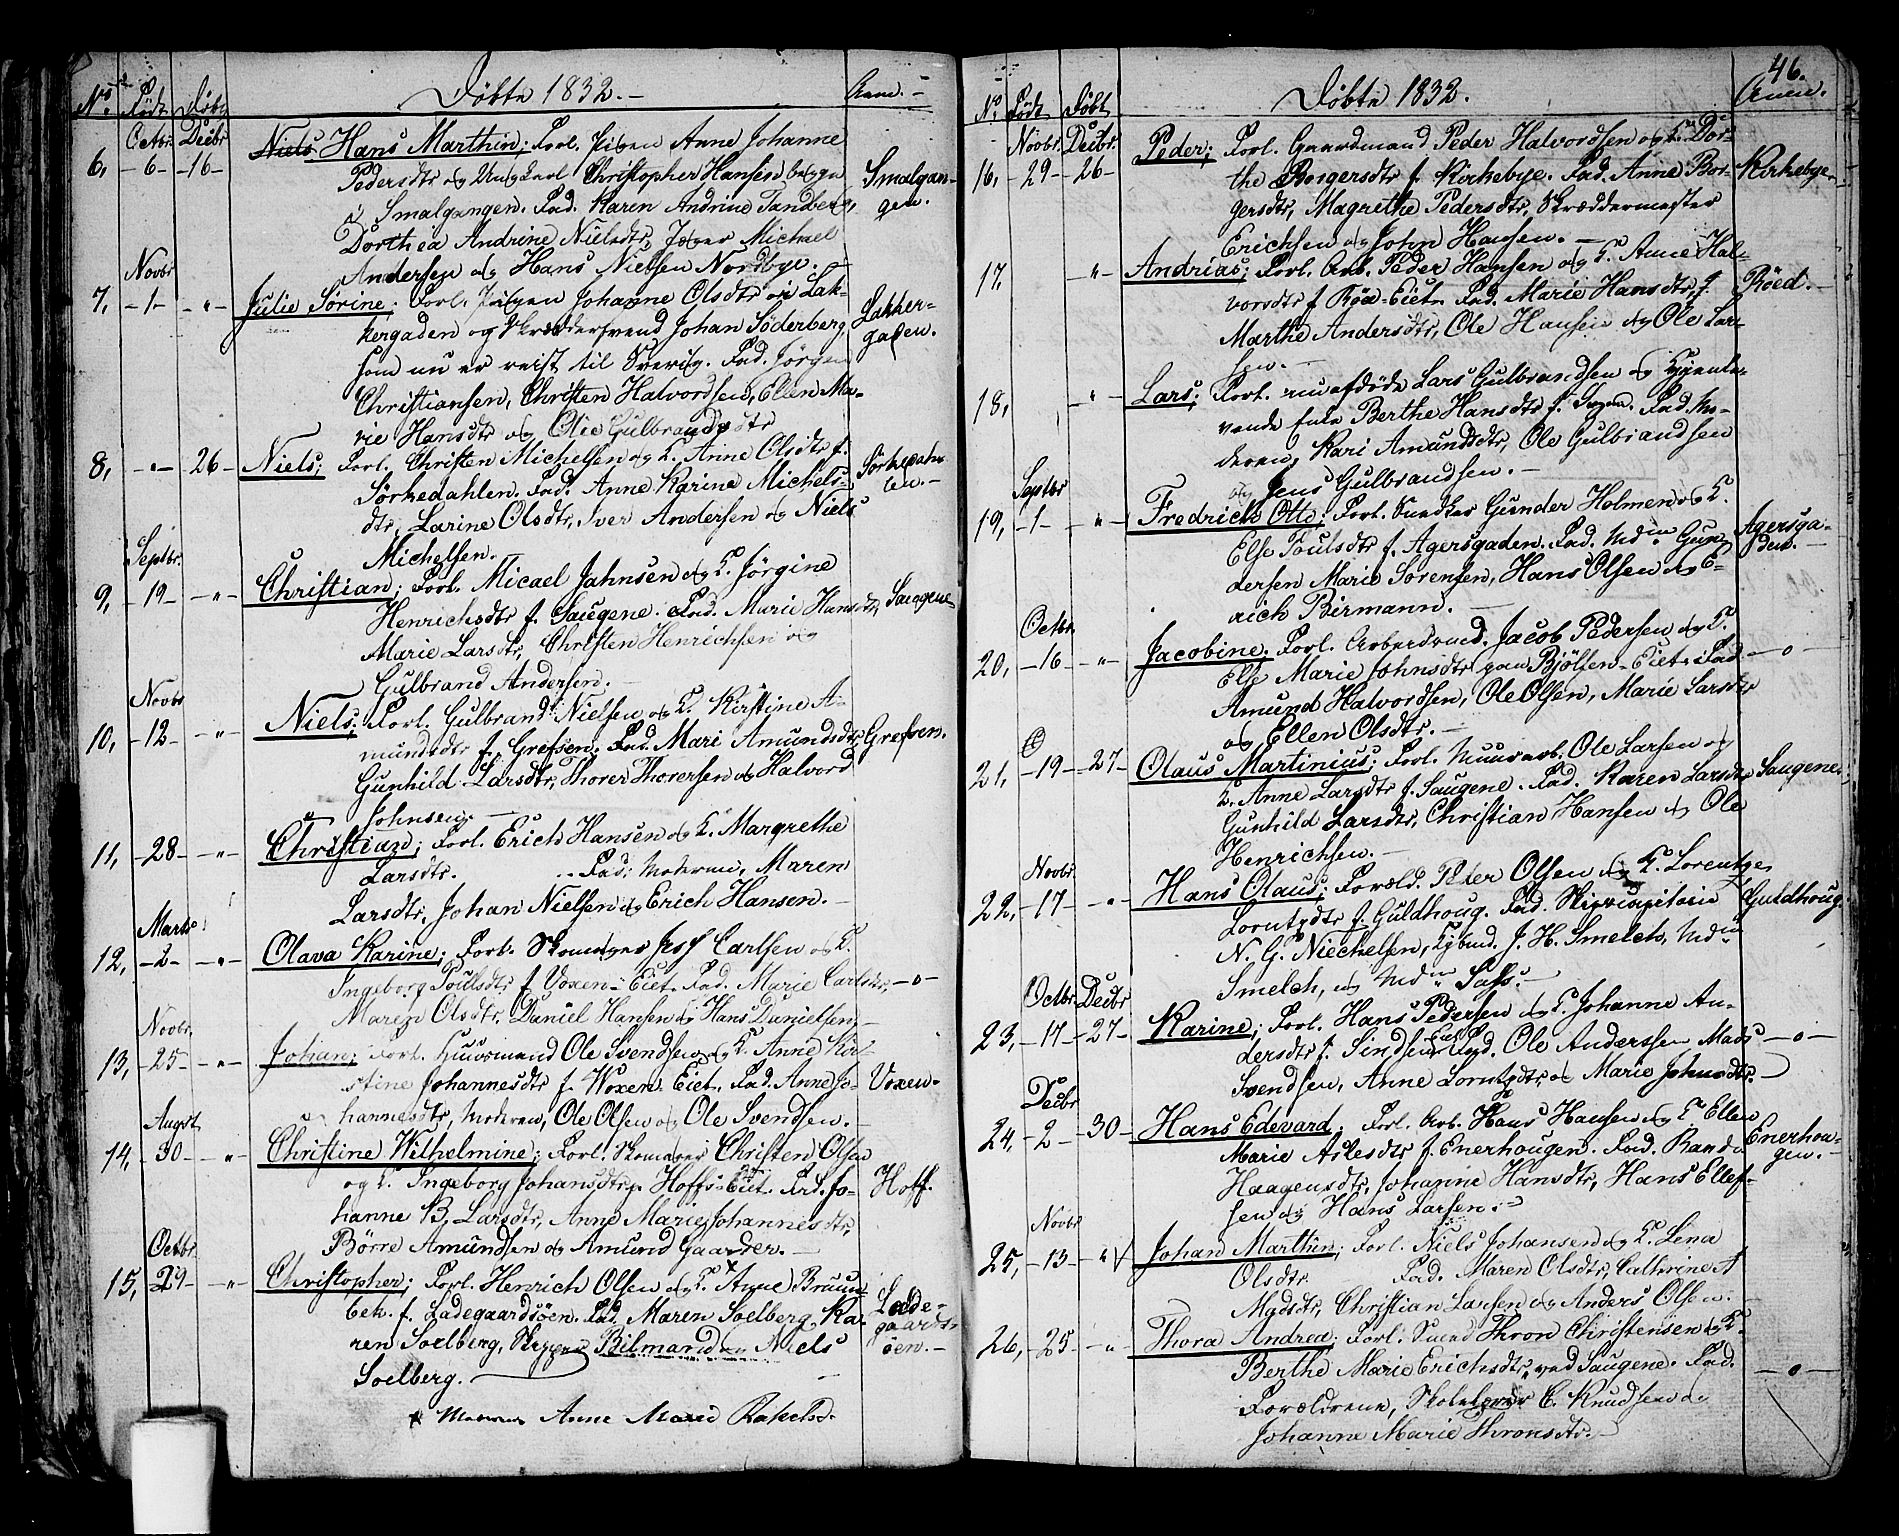 No. Födt Döbt Döbte 1832. Anm.
Octbr. Decbr
6, -6- -16- Niels Hans Marthin; Forl. Pigen Anne Johanne
Pedersdtr og Ungkarl Christopher Hansen begge
i Smalgangen. Fad. Karen Andrine Tandberg,
Smalgangen.
Dorthea Andrine Nielsdtr, Jæger Michael
Andersen og Hans Nielsen Nordbye.
Novbr
7, -1- -"- Julie Sörine; Forl. Pigen Johanne Olsdtr i Lak-
kergaden og Skræddersvend Johan Söderberg,
Lakkergaden.
som nu er reist til Sverig. Fad. Jörgen
Christiansen, Christen Halvordsen, Ellen Ma-
rie Hansdtr og Olie Gulbrandsdtr
8, -"- 26- Niels; Forl. Christen Michelsen og K. Anne Olsdtr f.
Sörkedahlen. Fad. Anne Karine Michels-
Sörkedahlen.
dtr, Larine Olsdtr, Iver Andersen og Niels
Michelsen.
Septbr.
9, -19- -"- Christian; Forl. Micael Jahnsen og K. Jörgine
Henrichsdtr f. Saugene. Fad. Marie Hansdtr,
Saugene
Marie Larsdtr, Christen Henrichsen og
Gulbrand Andersen.
Novbr
10, -12- -"- Niels; Forl. Gulbrand Nielsen og K. Kirstine A-
mundsdtr f. Grefsen. Fad. Mari Amundsdtr
Grefsen.
Gunhild Larsdtr, Thorer Thorersen og Halvord
Johnsen.
11, -28- -"- Christian; Forl. Erich Hansen og K. Margrethe
Larsdtr. Fad. Moderen, Maren
Larsdtr, Johan Nielsen og Erich Hansen.
Marts
12, -2- -"- Olava Karine; Forl. Skomager Jess Carlsen og K.
Ingeborg Poulsdtr f. Voxen-Eiet. Fad. Marie Carlsdtr, -o-
Maren Olsdtr, Daniel Hansen og Hans Danielsen.
Novbr.
13, -25- -"- Johan; Forl. Huusmand Ole Svendsen og K. Anne Kir-
stine Johannesdtr f. Woxen Eiet. Fad. Anne Jo-
Voxen.
hannesdtr, Moderen, Ole Olsen og Ole Svendsen.
Augst
14, -30- -"- Christine Wilhelmine; Forl. Skomager Christen Olsen
og K. Ingeborg Johansdtr Hoffs-Eiet. Fad. Jo-
Hoff.
hanne B. Larsdtr, Anne Marie Johannesdtr,
Börre Amundsen og Amund Gaarder.
Octbr
15, 29- -"- Christopher; Forl. Henrich Olsen og K. Anne Bruun-
bek f. Ladegaardsöen. Fad. Maren Soelberg, Ka-
Ladegaardsöen.
ren Soelberg, Skipper Bilmand og Niels
Soelberg.
Moderen Anne Marie

46.
No. Födt Döbt Döbte 1832. Anm.
Novbr. Decbr.
16, -29- 26- Peder; Forl. Gaardmand Peder Halvordsen og K. Dor-
the Borgersdtr f. Kirkebye. Fad. Anne Bor-
Kirkebye
gersdtr, Magrethe Pedersdtr, Skræddermester
Erichsen og John Hansen.
17, -"- Andrias; Forl. Arb. Peder Hansen og K. Anne Hal-
vorsdtr f. Röe-Eiet. Fad. Marie Hansdtr,
Röed.
Marthe Andersdtr, Ole Hansen og Ole Lar-
sen.
18, -"- Lars; Forl. nuafdöde Lars Gulbrandsen og Gjenle-
vende Enke Berthe Hansdtr f. Fad. Mo-
deren, Kari Amundsdtr, Ole Gulbrandsen
og Jens Gulbrandsen.
Septbr
19, -1- -"- Fredrich Otto; Forl. Snedker Gunder Holmen og K.
Else Poulsdtr f. Agersgaden. Fad. Mdm Gun-
Agersgaden.
dersen Marie Sörensen, Hans Olsen og E-
rich Birmann.
Octbr
20, -16- -"- Jacobine; Forl. Arbeidsmd. Jacob Pedersen og K.
Else Marie Johnsdtr paa Bjölsen-Eiet. Fad. -o-
Amund Halvordsen, Ole Olsen, Marie Larsdtr
og Ellen Olsdtr.
21, -19- -27- Olaus Martinius; Forl. Muurarb. Ole Larsen og
K. Anne Larsdtr f. Saugene. Fad. Karen Larsdtr
Saugene.
Gunhild Larsdtr, Christian Hansen og Ole
Henrichsen.
Novbr.
22, -17- -"- Hans Olaus; Foræld. Peder Olsen og K. Lorentze
Lorntzdtr f. Guldhoug. Fad. Skipcapitain
Guldhoug.
N. G. Niechelsen, Kjbmd. J. H. Smelch, Mdm
Smelch, og Mdm Sass.
Octbr Decbr
23, -17- 27- Karine; Forl. Hans Pedersen og K. Johanne An-
dersdtr f. Sindsen Eiet. Fad. Ole Anderssen Mads -o-
Svendsen, Anne Lorntzdtr og Marie Johnsdtr.
Decbr
24, -2- -30- Hans Edevard; Forl. Arb. Hans Hansen og K. Ellen
Marie Aslesdtr f. Enerhougen. Fad. Rand
Enerhougen.
Haagensdtr, Johanne Hansdtr, Hans Ellef-
sen og Hans Larsen.
Novbr
25, -13- -"- Johan Marthin; Forl. Niels Johansen og K. Lena
Olsdtr. Fad. Maren Olsdtr, Cathrine A
Mgdsdtr, Christian Larsen og Anders Olsen.
26, -25- -"- Thora Andrea; Forl. Smed Thron Christensen og K.
Berthe Marie Erichsdtr ved Saugene. Fad. -o-
Forældrene, Skolelærer C. Knudsen og
Johanne Marie Thronsdtr.